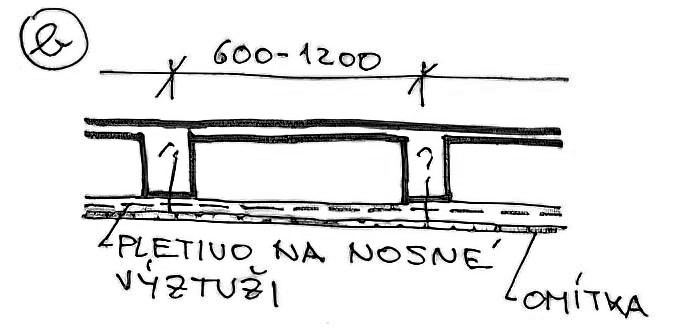 b
600-1200
? ?
PLETIVO NA NOSNÉ
VÝZTUŽI
OMÍTKA